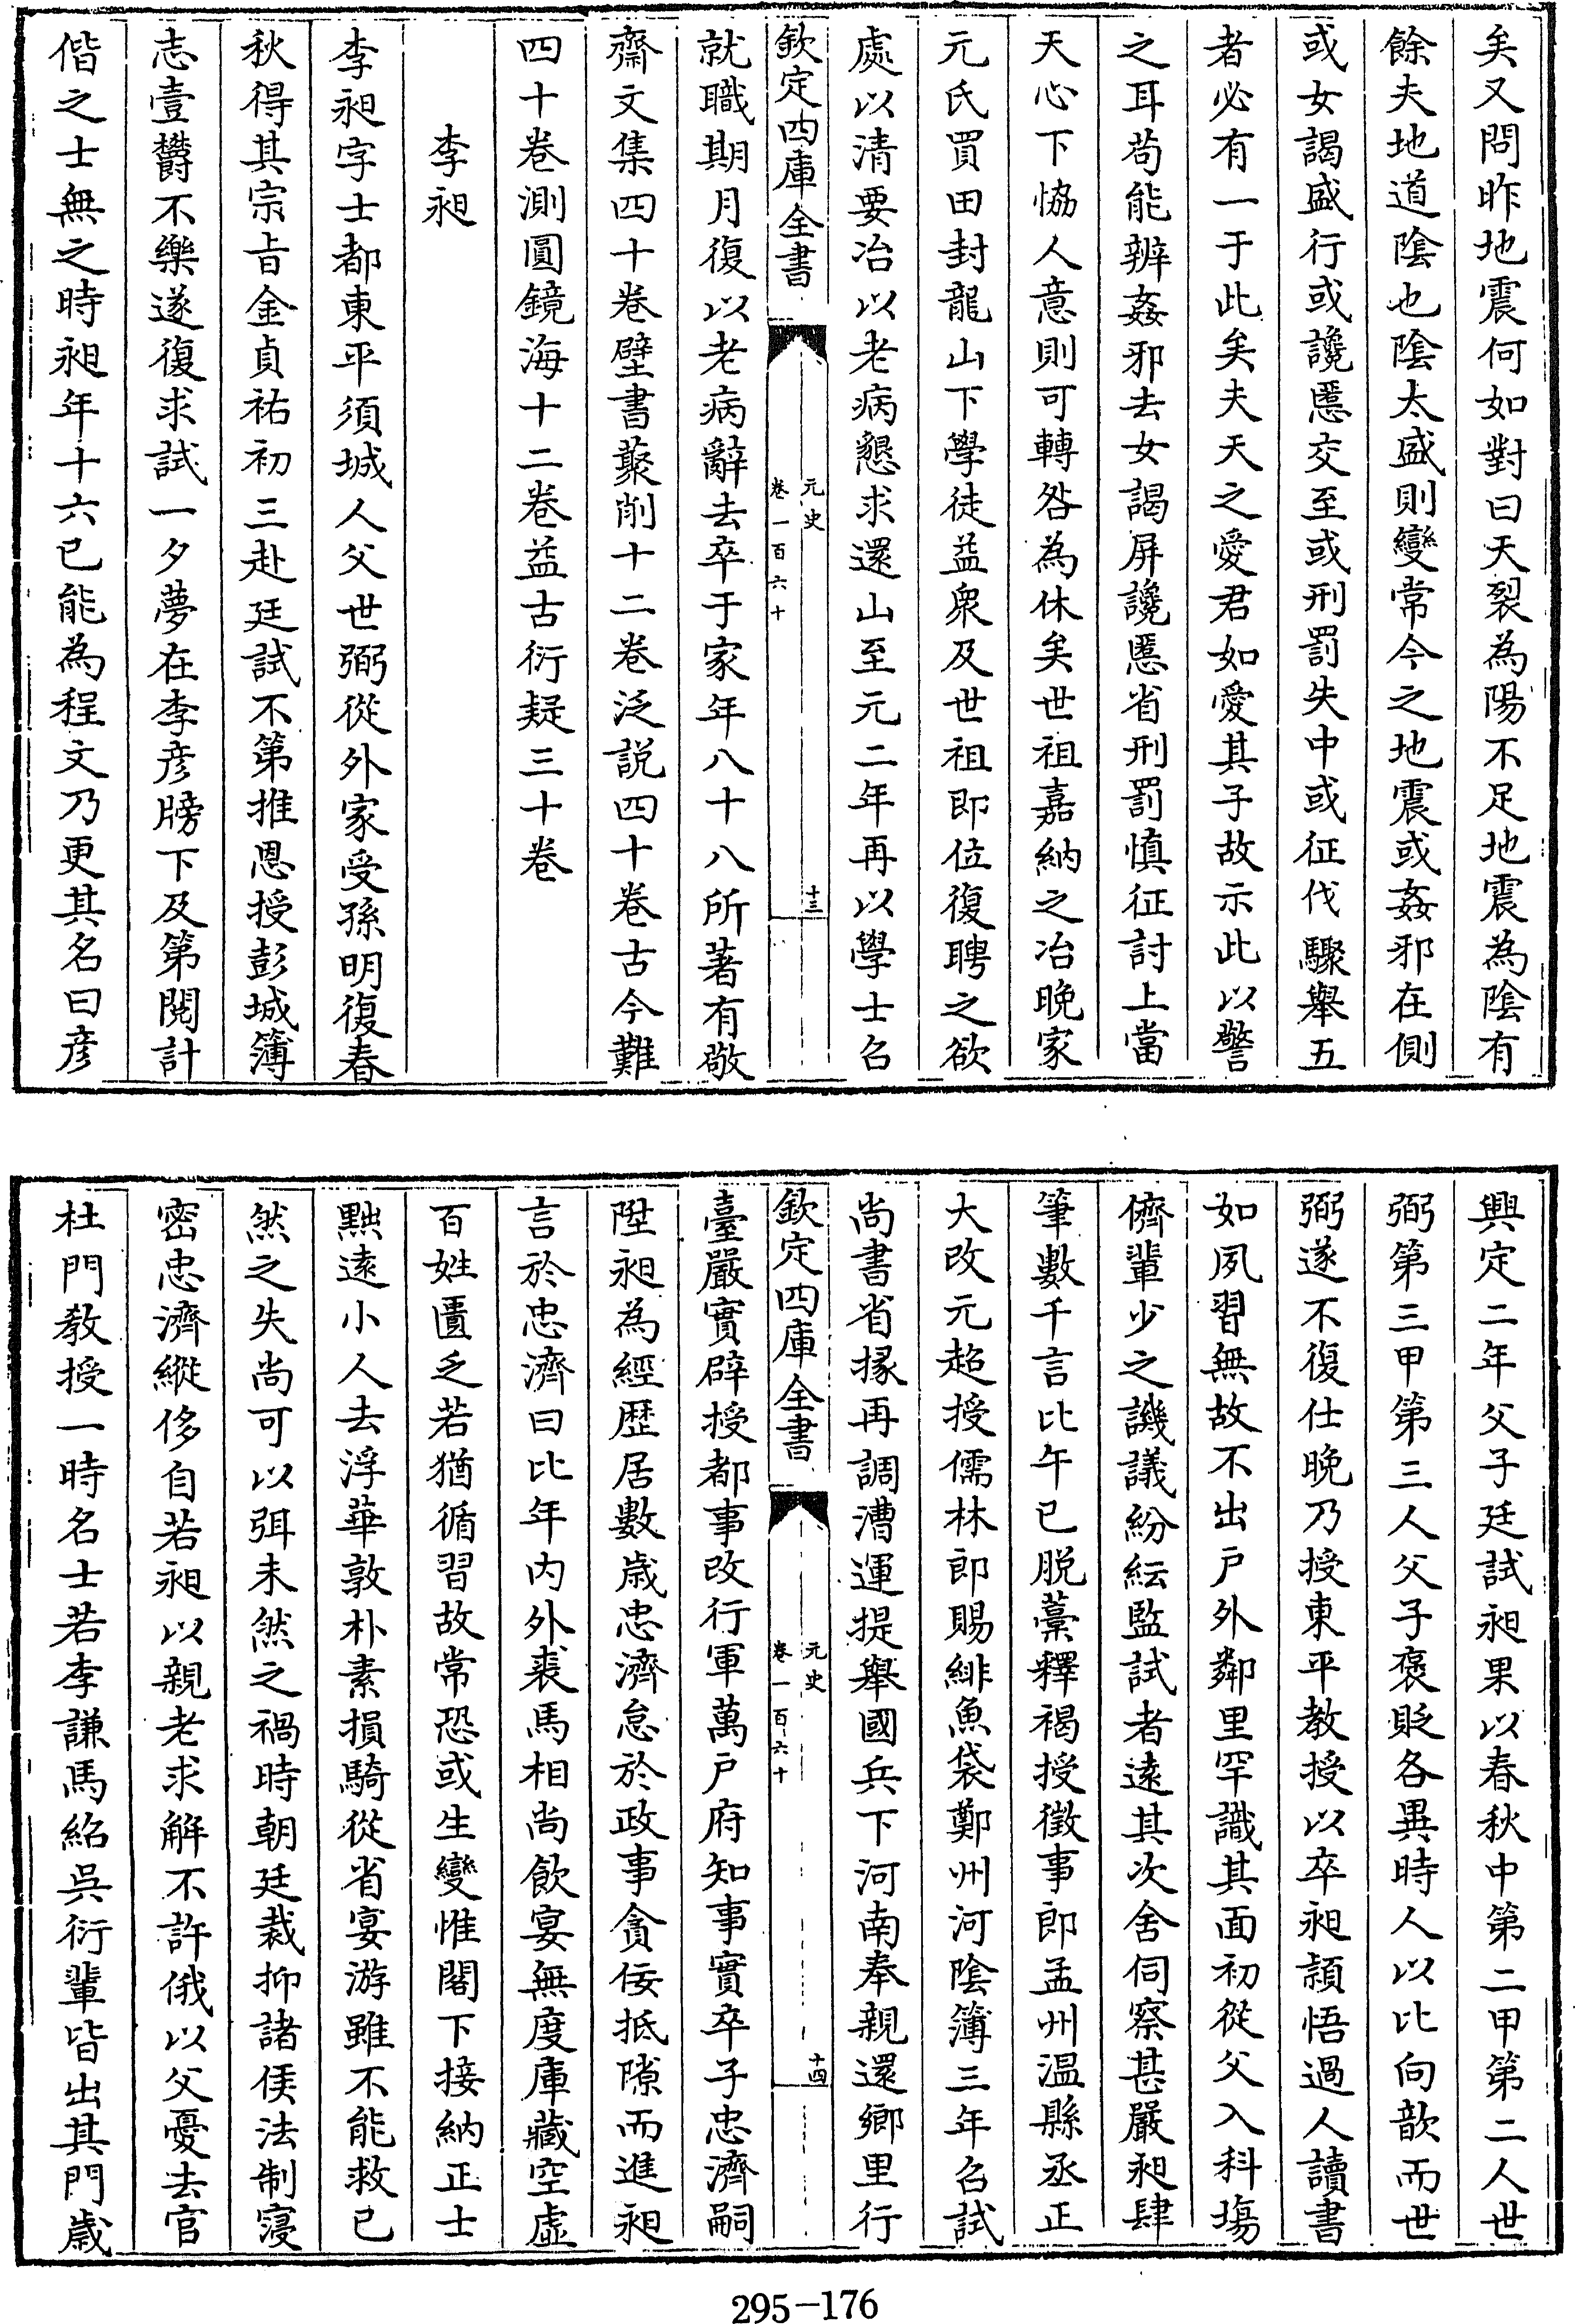 矣又問昨地震何如對曰天裂為陽不足地震為陰有
餘夫地道陰也陰太盛則變常今之地震或姦邪在側
或女謁盛行或讒慝交至或刑罰失中或征伐驟舉五
者必有一于此矣夫天之愛君如愛其子故示此以警
之耳苟能辨姦邪去女謁屏讒慝省刑罰慎征討上當
天心下恊人意則可轉咎為休矣世祖嘉納之冶晚家
元氏買田封龍山下學徒益衆及世祖即位復聘之欲
處以清要冶以老病懇求還山至元二年再以學士召
欽定四庫全書
元史
卷一百六十
十三
就職期月復以老病辭去卒于家年八十八所著有敬
齋文集四十卷壁書藂削十二卷泛説四十卷古今難
四十卷測圓鏡海十二卷益古衍疑三十卷
李昶
李昶字士都東平須城人父世弼從外家受孫明復春
秋得其宗旨金貞祐初三赴廷試不第推恩授彭城簿
志壹鬱不樂遂復求試一夕夢在李彦牓下及第閲計
偕之士無之時昶年十六已能為程文乃更其名曰彦
興定二年父子廷試昶果以春秋中第二甲第二人世
弼第三甲第三人父子褒貶各異時人以比向歆而世
弼遂不復仕晚乃授東平教授以卒昶頴悟過人讀書
如夙習無故不出戸外鄰里罕識其面初從父入科塲
儕輩少之譏議紛紜監試者遠其次舍伺察甚嚴昶肆
筆數千言比午已脱藁釋褐授徵事郎孟州温縣丞正
大改元超授儒林郎賜緋魚袋鄭州河陰簿三年召試
尚書省掾再調漕運提舉國兵下河南奉親還鄉里行
欽定四庫全書
元史
卷一百六十
十四
臺嚴實辟授都事改行軍萬戸府知事實卒子忠濟嗣
陞昶為經歴居數歳忠濟怠於政事貪佞抵隙而進昶
言於忠濟曰比年内外裘馬相尚飲宴無度庫藏空虚
百姓匱乏若猶循習故常恐或生變惟閣下接納正士
黜遠小人去浮華敦朴素損騎從省宴游雖不能救已
然之失尚可以弭未然之禍時朝廷裁抑諸侯法制寖
密忠濟縱侈自若昶以親老求解不許俄以父憂去官
杜門教授一時名士若李謙馬紹吳衍輩皆出其門歳
295-176